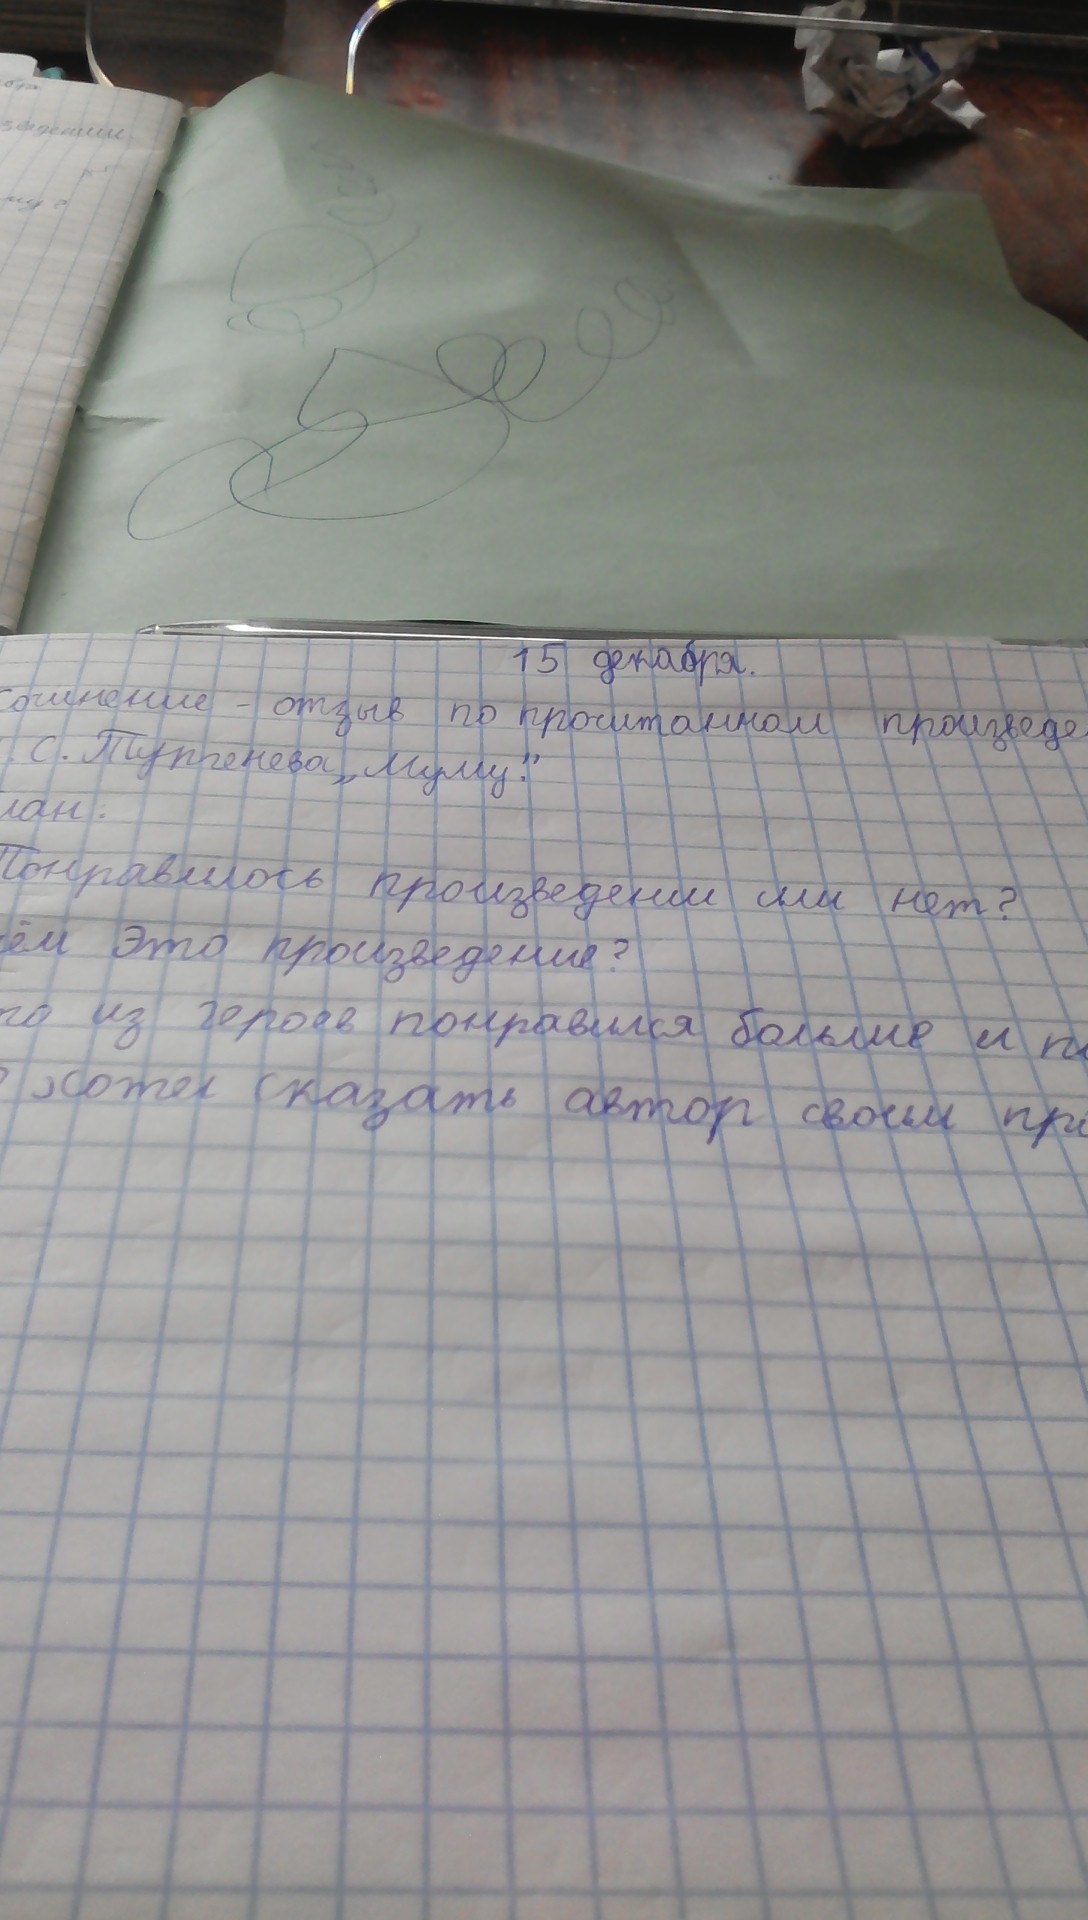 15 декабря.
сочинение - отзыв по прочитанном произведе
. С. Тупгенева „Муму."
лан:
Понравилось произведении или нет?
чём это произведение?
то из героев понравился больше и по
хотел сказать автор своим при